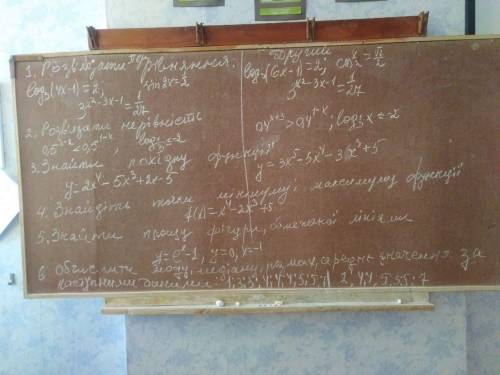 1. Розв'язати рівняння. Другий
log₃(4x-1)=2, sin2x=½ log₇(6x-1)=2; cos x/2=√2/2
3^(x²-3x-1)=1/27 3^(x²-3x-1)=1/27
2. Розв'язати нерівність
log x≤-2 0,4^(x+3)>0,4^(1-x); log x≤-2
3. Знайти похідну функції
y=2x⁴-5x³+2x-5 y=3x⁵-5x⁴-3x³+5
4. Знайдіть точки мінімуму, максимуму функції
f(x)=x⁴-2x³+5
5. Знайти площу фігури, обмеженої лініями
y=eˣ-1, y=0, x=-1
6. Обчислити моду, медіану, розмах, середнє значення за
наступними даними: 1; 3; 3; 4; 4; 4; 5; 5;